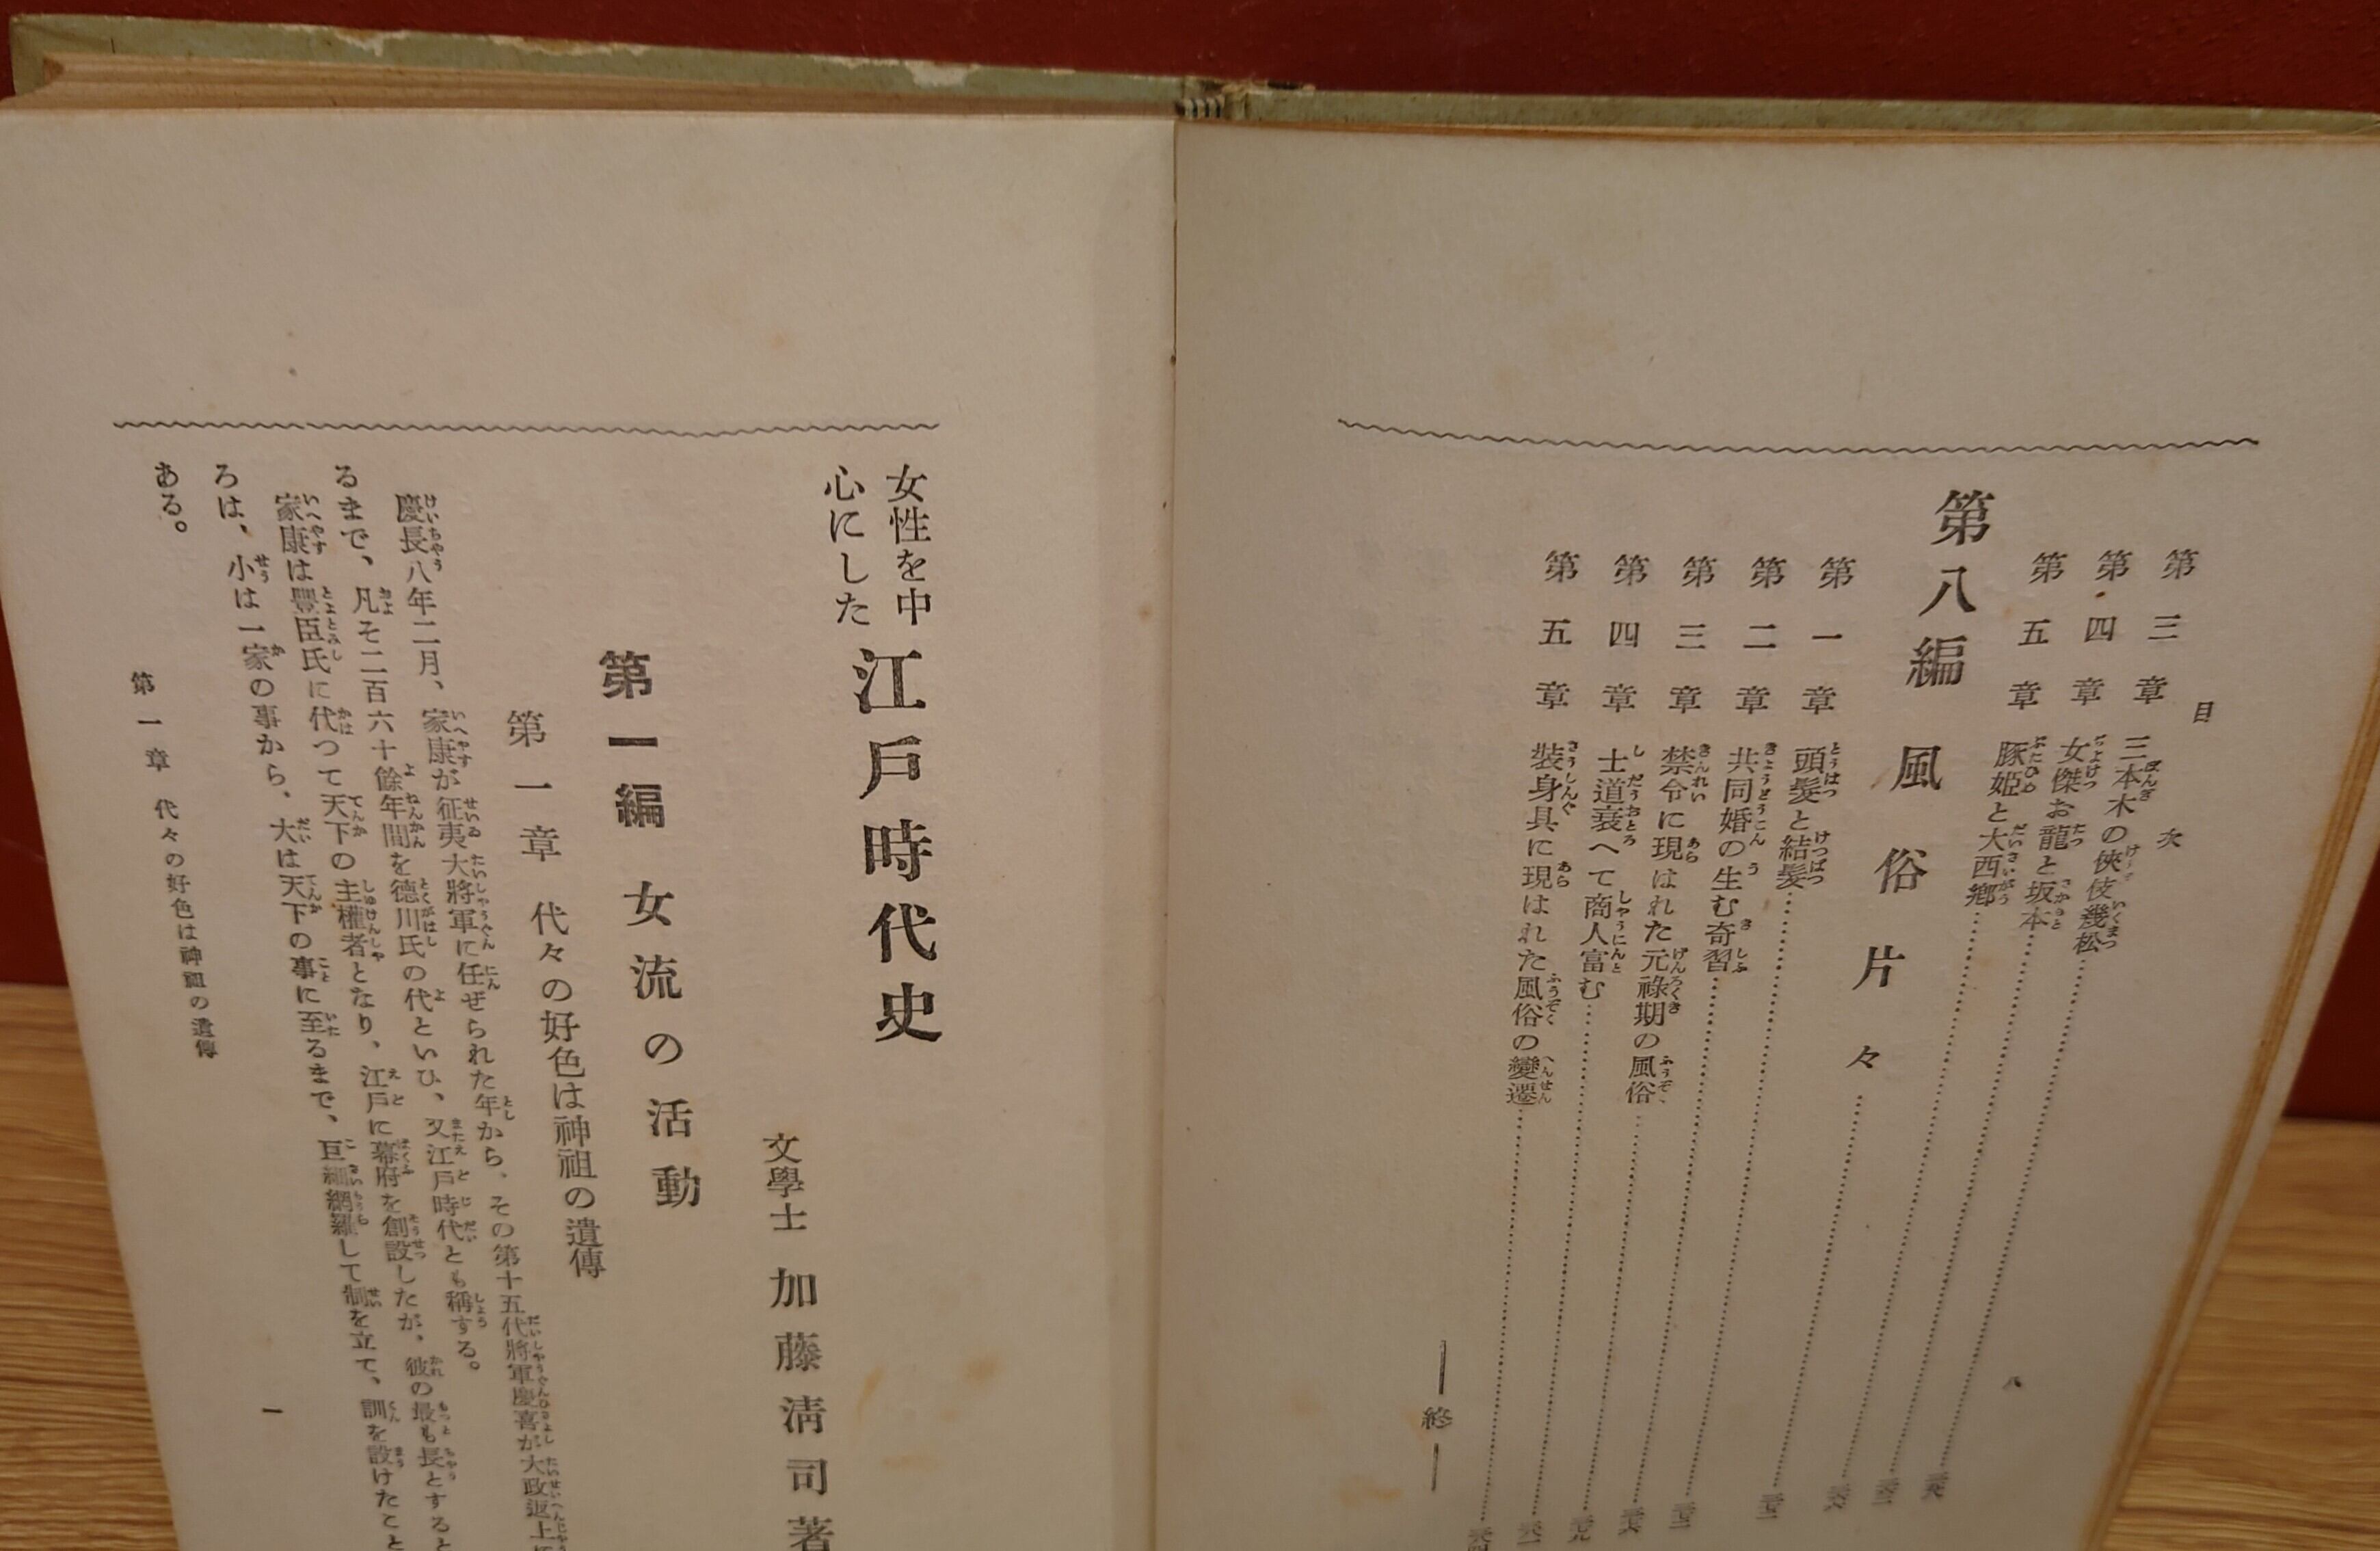 目次
第三章 三本木の俠伎幾松
第四章 女傑お龍と坂本
第五章 豚姫と大西郷
第八編 風俗片々
第一章 頭髪と結髪
第二章 共同婚の生む奇習
第三章 禁令に現はれた元祿期の風俗
第四章 士道衰へて商人富む
第五章 裝身具に現はれた風俗の變遷
終
八
女性を中
心にした
江戶時代史
文學士 加藤淸司著
第一編 女流の活動
第一章 代々の好色は神祖の遺傳
慶長八年二月、家康が征夷大將軍に任ぜられた年から、その第十五代將軍慶喜が大政返上
るまで、凡そ二百六十餘年間を德川氏の代といひ、又江戶時代とも稱する。
家康は豐臣氏に代つて天下の主權者となり、江戶に幕府を創設したが、彼の最も長とすると
ろは、小は一家の事から、大は天下の事に至るまで、巨細網羅して制を立て、訓を設けたこと
ある。
第一章 代々の好色は神祖の遺傳
一